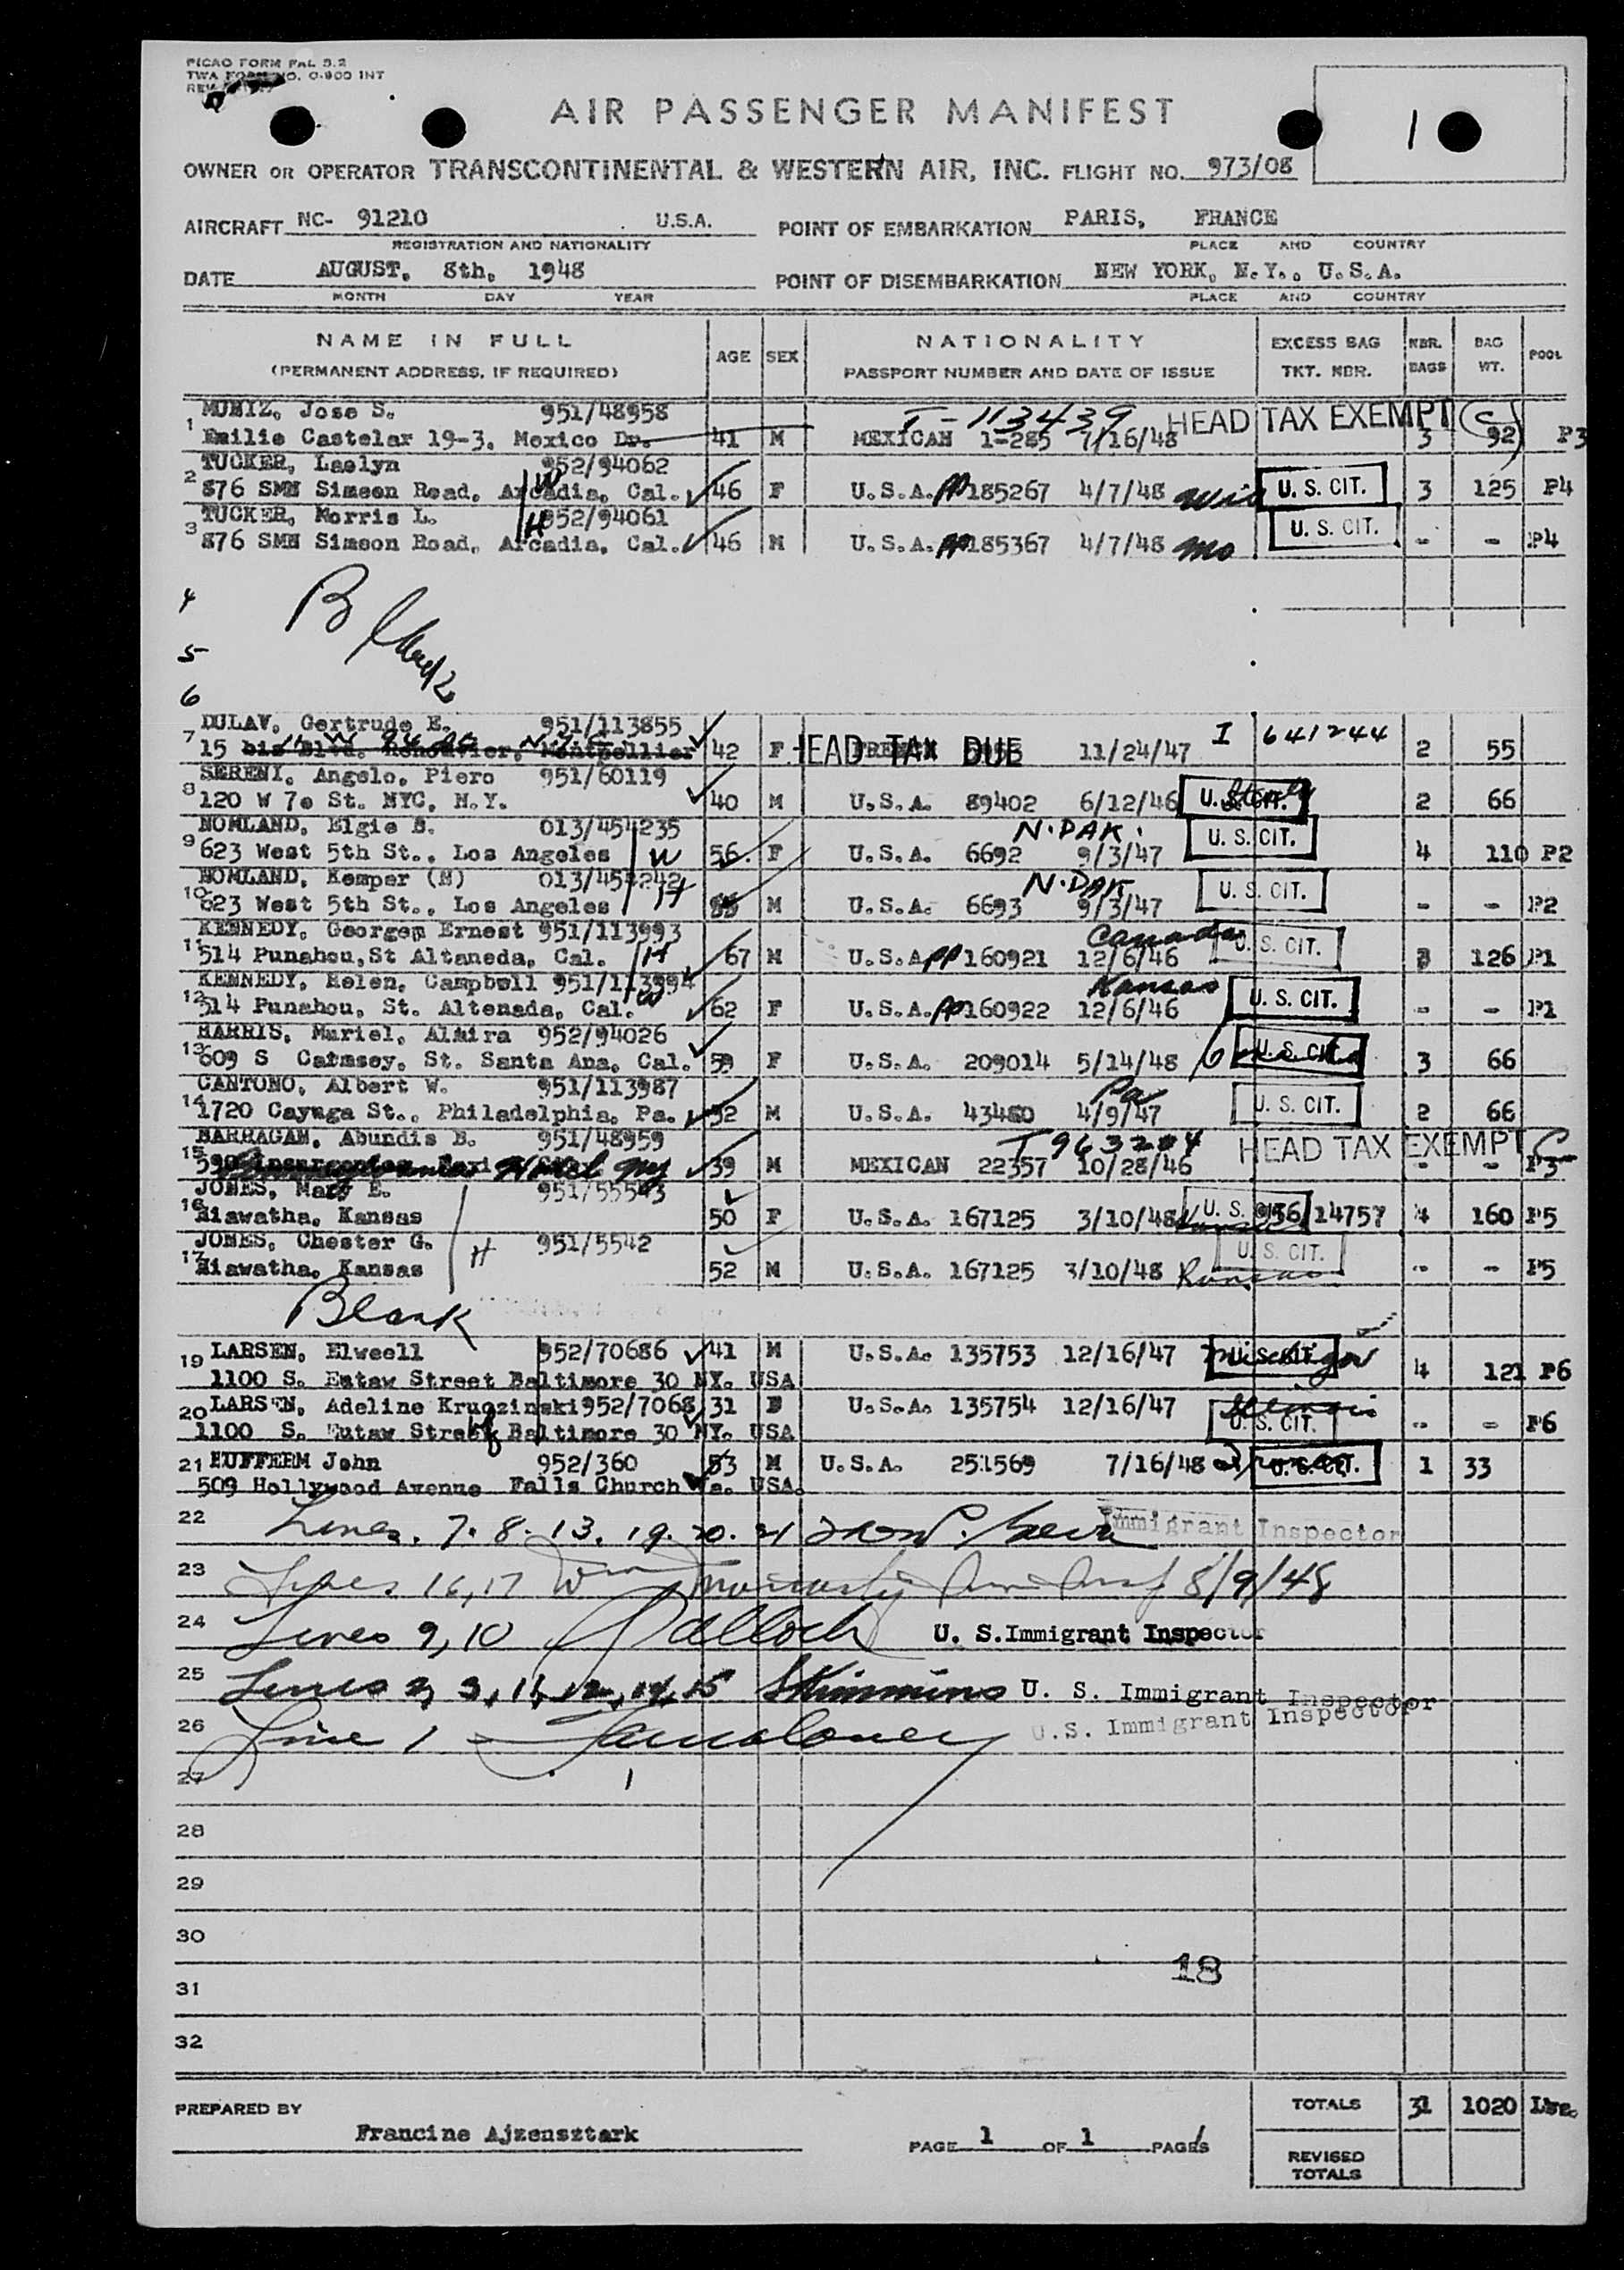 PICAO FORM PAL 3.2
TWA FORM NO. O-900 INT
REV.
AIR PASSENGER MANIFEST
1
OWNER OR OPERATOR TRANSCONTINENTAL & WESTERN AIR, INC. FLIGHT NO. 973/08
AIRCRAFT NC- 91210 U.S.A. POINT OF EMBARKATION PARIS, FRANCE
REGISTRATION AND NATIONALITY PLACE AND COUNTRY
DATE AUGUST, 8th, 1948 POINT OF DISEMBARKATION NEW YORK, N.Y., U.S.A.
MONTH DAY YEAR PLACE AND COUNTRY
NAME IN FULL AGE SEX NATIONALITY EXCESS BAG NBR. BAG POOL
(PERMANENT ADDRESS, IF REQUIRED) PASSPORT NUMBER AND DATE OF ISSUE TKT. NBR. BAGS WT.
MUNIZ, Jose S. 951/48958 T-113439 HEAD TAX EXEMPT
1 Emilie Castelar 19-3. Mexico 41 M MEXICAN 1-285 7/16/48 3 92 P3
TUCKER, Laelyn 952/94062
2 876 SMN Simeon Road, Arcadia, Cal. W 46 F U.S.A. PP 185267 4/7/48 Wis U. S. CIT. 3 125 P4
TUCKER, Morris L. 952/94061
3 876 SMN Simeon Road, Arcadia, Cal. H 46 M U.S.A. PP 185367 4/7/48 Mo U. S. CIT. - - P4
4 Blank
5
6
DULAV, Gertrude E. 951/113855
7 15 42 F HEAD TAX DUE 11/24/47 I 641244 2 55
SERENI, Angelo, Piero 951/60119
8 120 W 7o St. NYC, N.Y. 40 M U.S.A. 89402 6/12/46 U. S. CIT. 2 66
NOMLAND, Elgie S. 013/454235 N.DAK.
9 623 West 5th St., Los Angeles W 56 F U.S.A. 6692 9/3/47 U. S. CIT. 4 110 P2
NOMLAND, Kemper (N) 013/454242 N.DAK
10 623 West 5th St., Los Angeles H M U.S.A. 6693 9/3/47 U. S. CIT. - - P2
KENNEDY, Georgem Ernest 951/113993 Canada
11 514 Punahou, St Altaneda, Cal. H 67 M U.S.A. PP 160921 12/6/46 U. S. CIT. 3 126 P1
KENNEDY, Helen, Campbell 951/113994 Kansas
12 514 Punahou, St. Altenada, Cal. W 62 F U.S.A. PP 160922 12/6/46 U. S. CIT. - - P1
HARRIS, Muriel, Almira 952/94026
13 609 S St. Santa Ana, Cal. 59 F U.S.A. 209014 5/14/48 U. S. CIT. 3 66
CANTONO, Albert W. 951/113987 Pa
14 1720 Cayuga St., Philadelphia, Pa. 32 M U.S.A. 43480 4/9/47 U. S. CIT. 2 66
BARRAGAN, Abundis B. 951/48959 T 963284 HEAD TAX EXEMPT
15 39 M MEXICAN 22357 10/28/46 - - P3
JONES, Mary E. 951/55543
16 Hiawatha, Kansas 50 F U.S.A. 167125 3/10/48 Kansas U. S. CIT. 14757 4 160 P5
JONES, Chester G. 951/5542
17 Hiawatha, Kansas H 52 M U.S.A. 167125 3/10/48 Kansas U. S. CIT. - - P5
Blank
19 LARSEN, Elweell 952/70686 41 M U.S.A. 135753 12/16/47 Michigan U. S. CIT. 4 121 P6
1100 S. Eutaw Street Baltimore 30 NY. USA
20 LARSEN, Adeline Krugzinski 952/7068 31 F U.S.A. 135754 12/16/47 Illinois U. S. CIT. - - P6
1100 S. Eutaw Street Baltimore 30 NY. USA
21 HUFFERM John 952/360 53 M U.S.A. 251569 7/16/48 U. S. CIT. 1 33
509 Hollywood Avenue Falls Church Va. USA.
22 Lines. 7. 8. 13. 19. 20. 21 Immigrant Inspector
23 Lines 16, 17 8/9/48
24 Lines 9, 10 U. S. Immigrant Inspector
25 Lines 2, 3, 11, 12, 14, 15 Skimmins U. S. Immigrant Inspector
26 Line 1 U.S. Immigrant Inspector
27
28
29
30
18
31
32
PREPARED BY Francine Ajzensztark
PAGE 1 OF 1 PAGES
TOTALS 31 1020 Lbs.
REVISED TOTALS